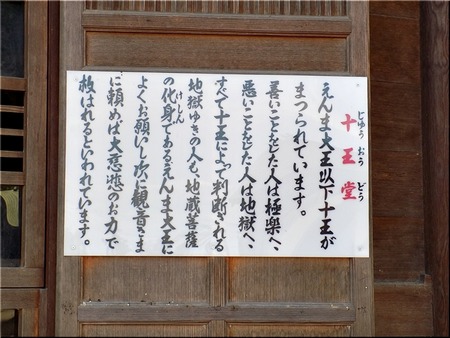 十王堂
じゅうおうどう
えんま大王以下十王が
まつられています。
善いことをした人は極楽へ、
悪いことをした人は地獄へ、
すべて十王によって判断される
地獄ゆきの人も、地蔵菩薩
の化身であるえんま大王に
けしん
よくお願いし次に観音さま
に頼めば大慈悲のお力で
救はれるといわれています。